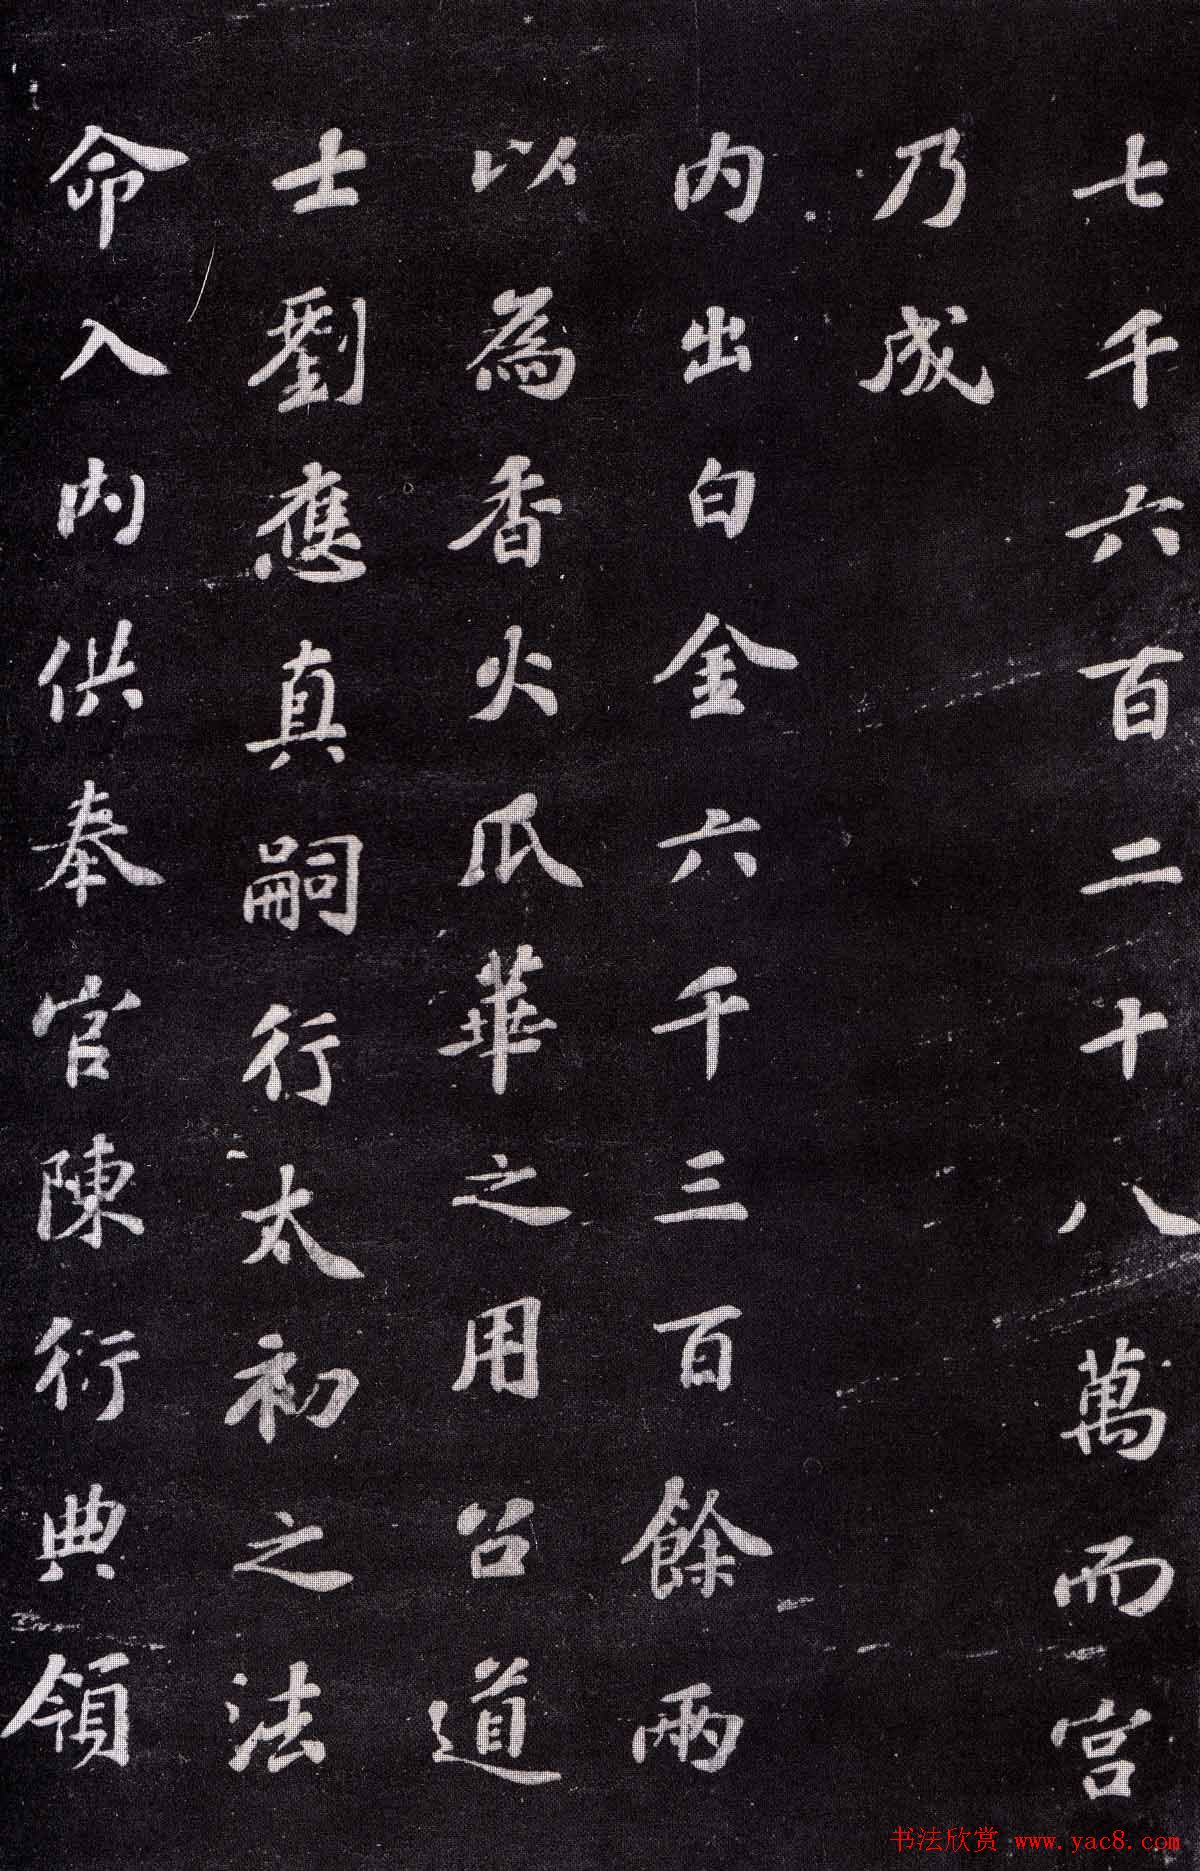 七千六百二十八萬而宮
乃成
內出白金六千三百餘兩
以為香火瓜華之用召道
士劉應真嗣行太初之法
命入內供奉官陳衍典領
书法欣赏 www.yac8.com